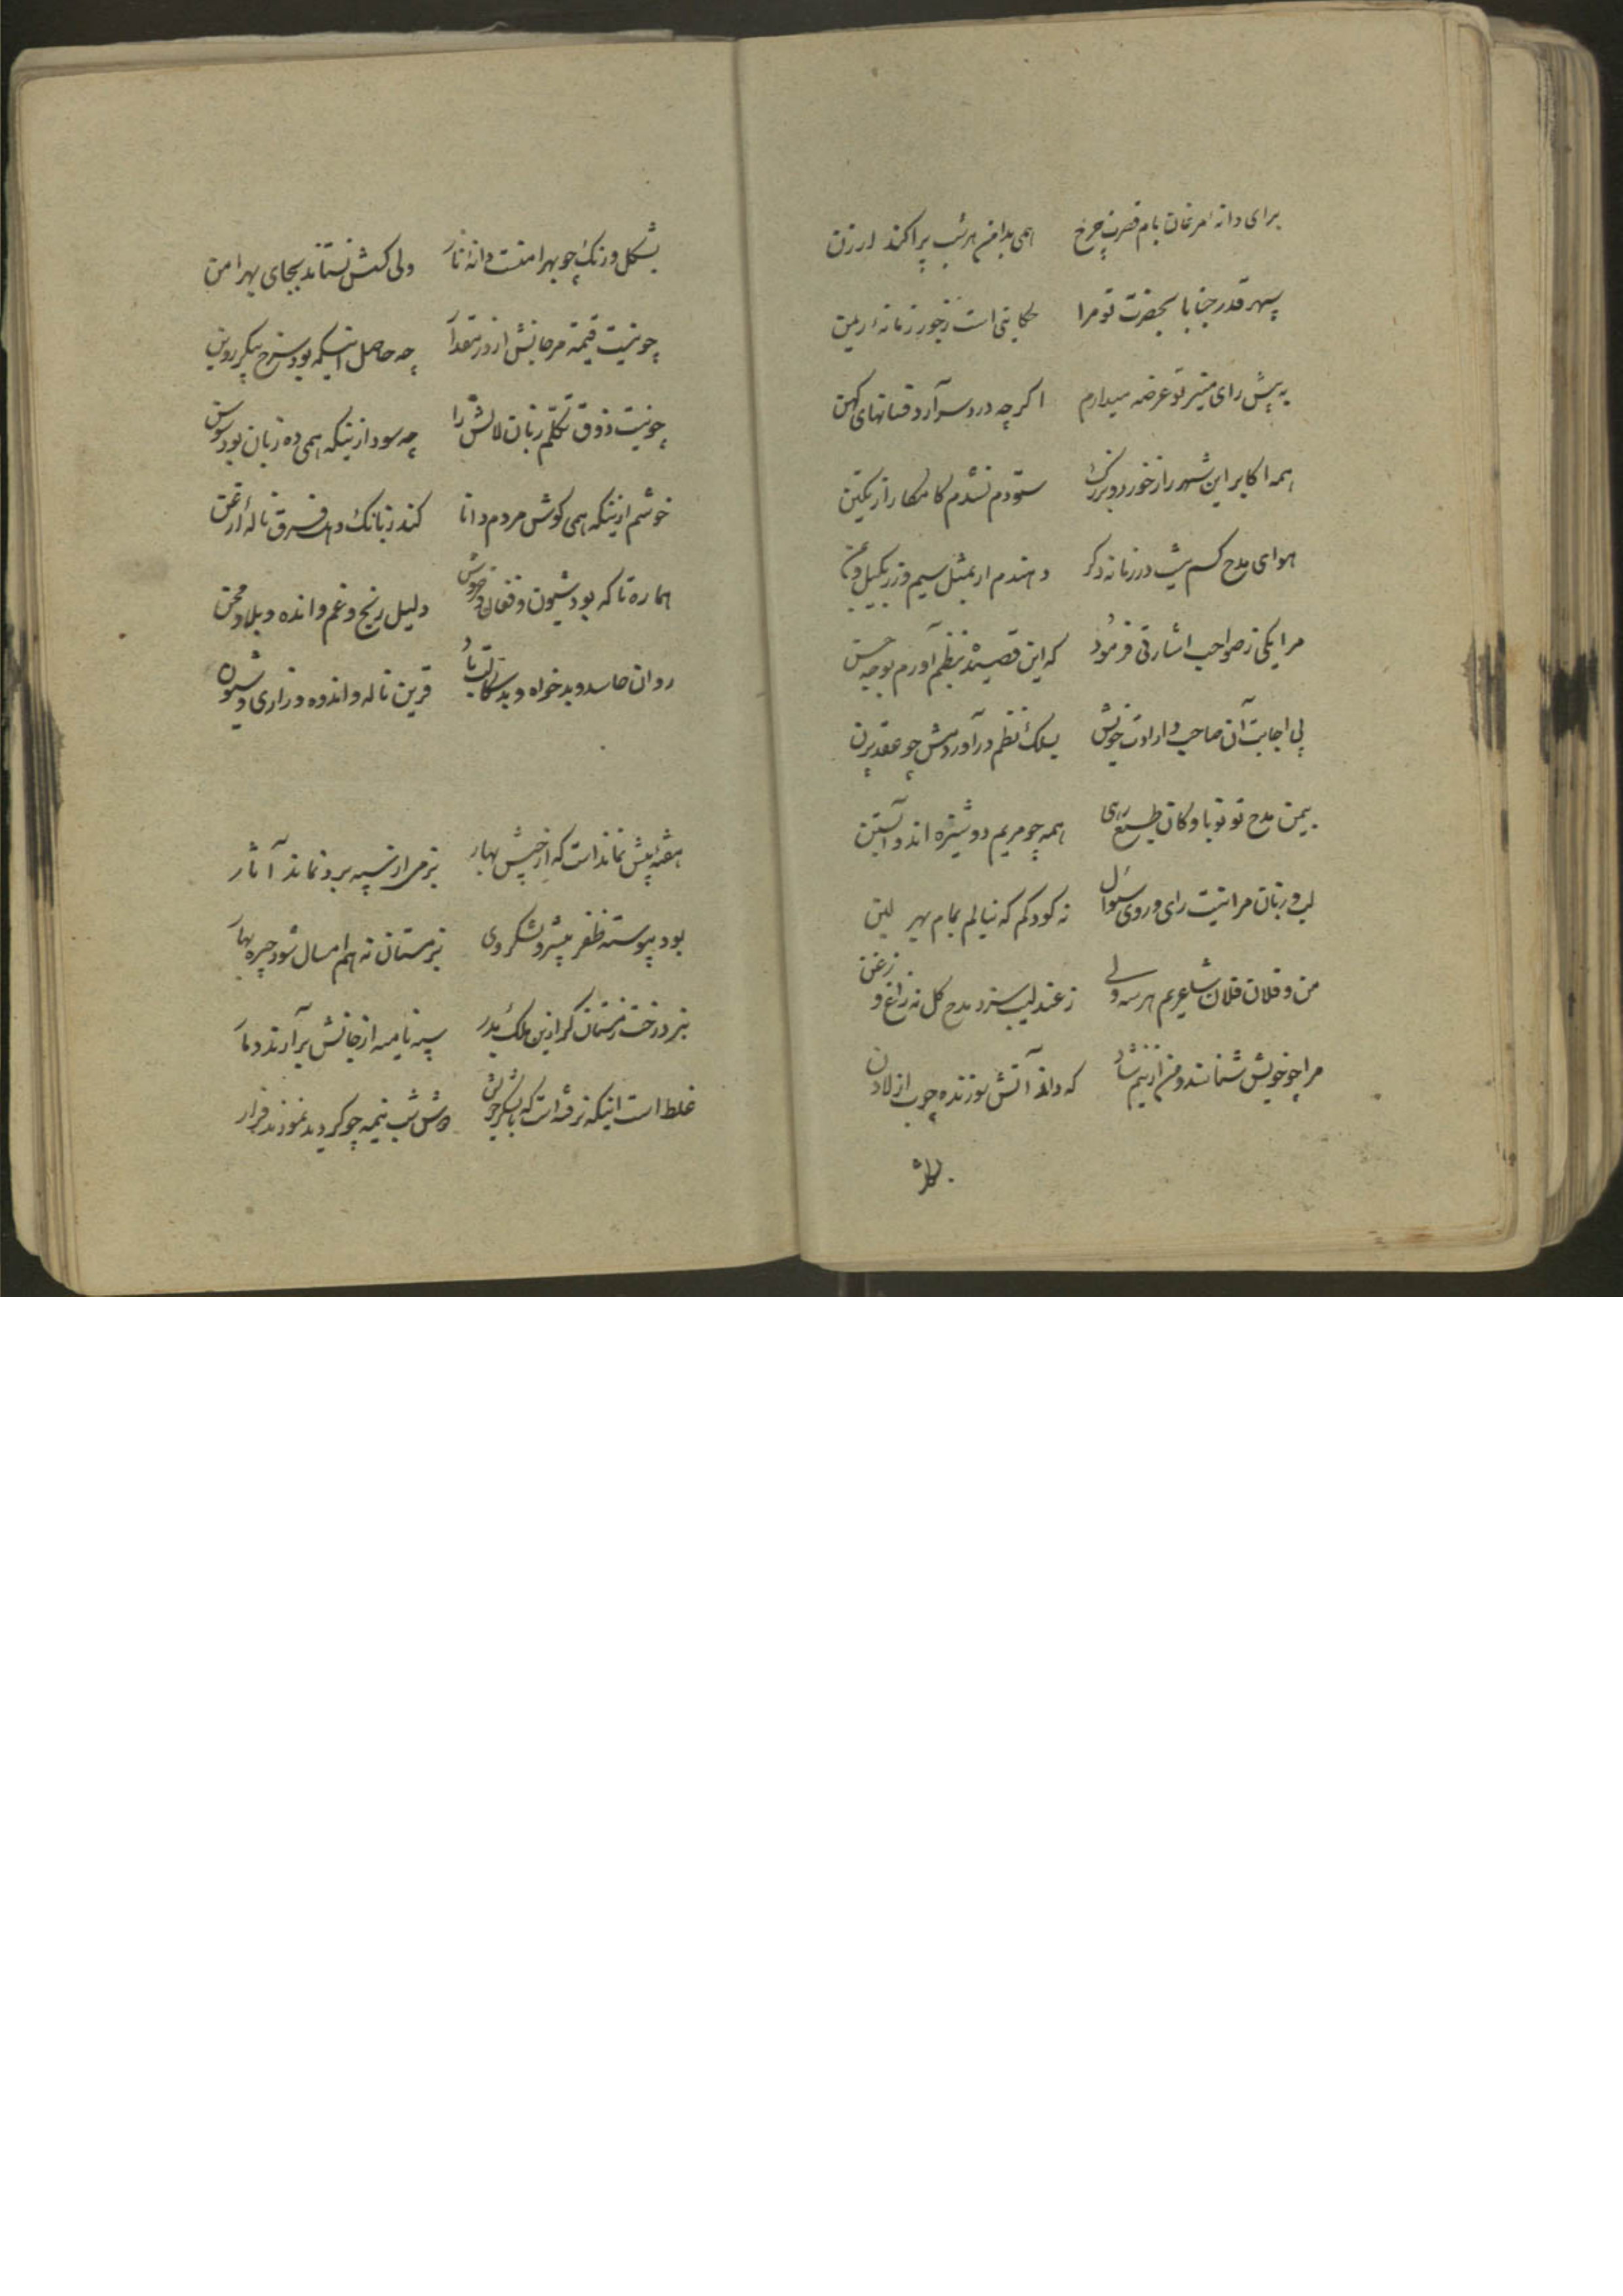 برای دانه مرغان بام قصرت چرخ همی بدامن هر شب پراکند ارزن
سپهر قدر جنابا بحضرت تو مرا حکایتی است ز جور زمانه ریمن
به پیش رای منیر تو عرضه میدارم اگر چه درد سر آرد فسانهای کهن
همه اکابر این شهر را ز خورد و بزرگ ستودم نشدم کامکار از یکتن
هوای مدح کسم نیست در زمانه دگر دهندم ار بمثل سیم و زر بکیل و بمن
مرا یکی ز صواحب اشارتی فرمود که این قصیده بنظم آورم بوجه حسن
پی اجابت آن صاحب و ارادت خویش بسلک نظم در آوردمش چو عقد پرن
بیمن مدح تو نوباوکان طبع رهی همه چو مریم دوشیزه اند و آبستن
لب و زبان مرا نیست رای و روی سئوال نه کودکم که بنالم بمام بهر لبن
من و فلان فلان شاعریم هر سه ولی ز عندلیب سزد مدح گل نه زاغ و زغن
مرا چو خویش شناسند و من ازینم شاد که داند آتش سوزنده چوب از لادن
بشکل ورنگ چو بهرامنست دانه نار ولی کسش نستاند بجای بهرامن
چو نیست قیمة مرجانش از در مقدار چه حاصل اینکه بود سرخ پیکر روین
چو نیست ذوق تکلم زبان لالش را چه سود ازینکه همی ده زبان بود سوسن
خوشم ازینکه همی گوش مردم دانا کند ز بانک دهل فرق ناله ارغن
هماره تا که بود شیون و فغان و خروش دلیل رنج و غم و انده و بلا و محن
روان حاسد و بدخواه و بدسکالت باد قرین ناله و اندوه و زاری و شیون
هفته بیش نمانداست که از جیش بهار بزمی از سپه برد نماند آثار
بود پیوسته ظفر پیشرو لشکر دی بزمستان نه هم امسال شود چیره بهار
نبرد رخت زمستان گر ازین ملک بدر سپه نامیه از جانش برآرند دمار
غلط است اینکه نرفته است که با لشکر خویش دوش شب نیمه چو گردید نمودند فرار